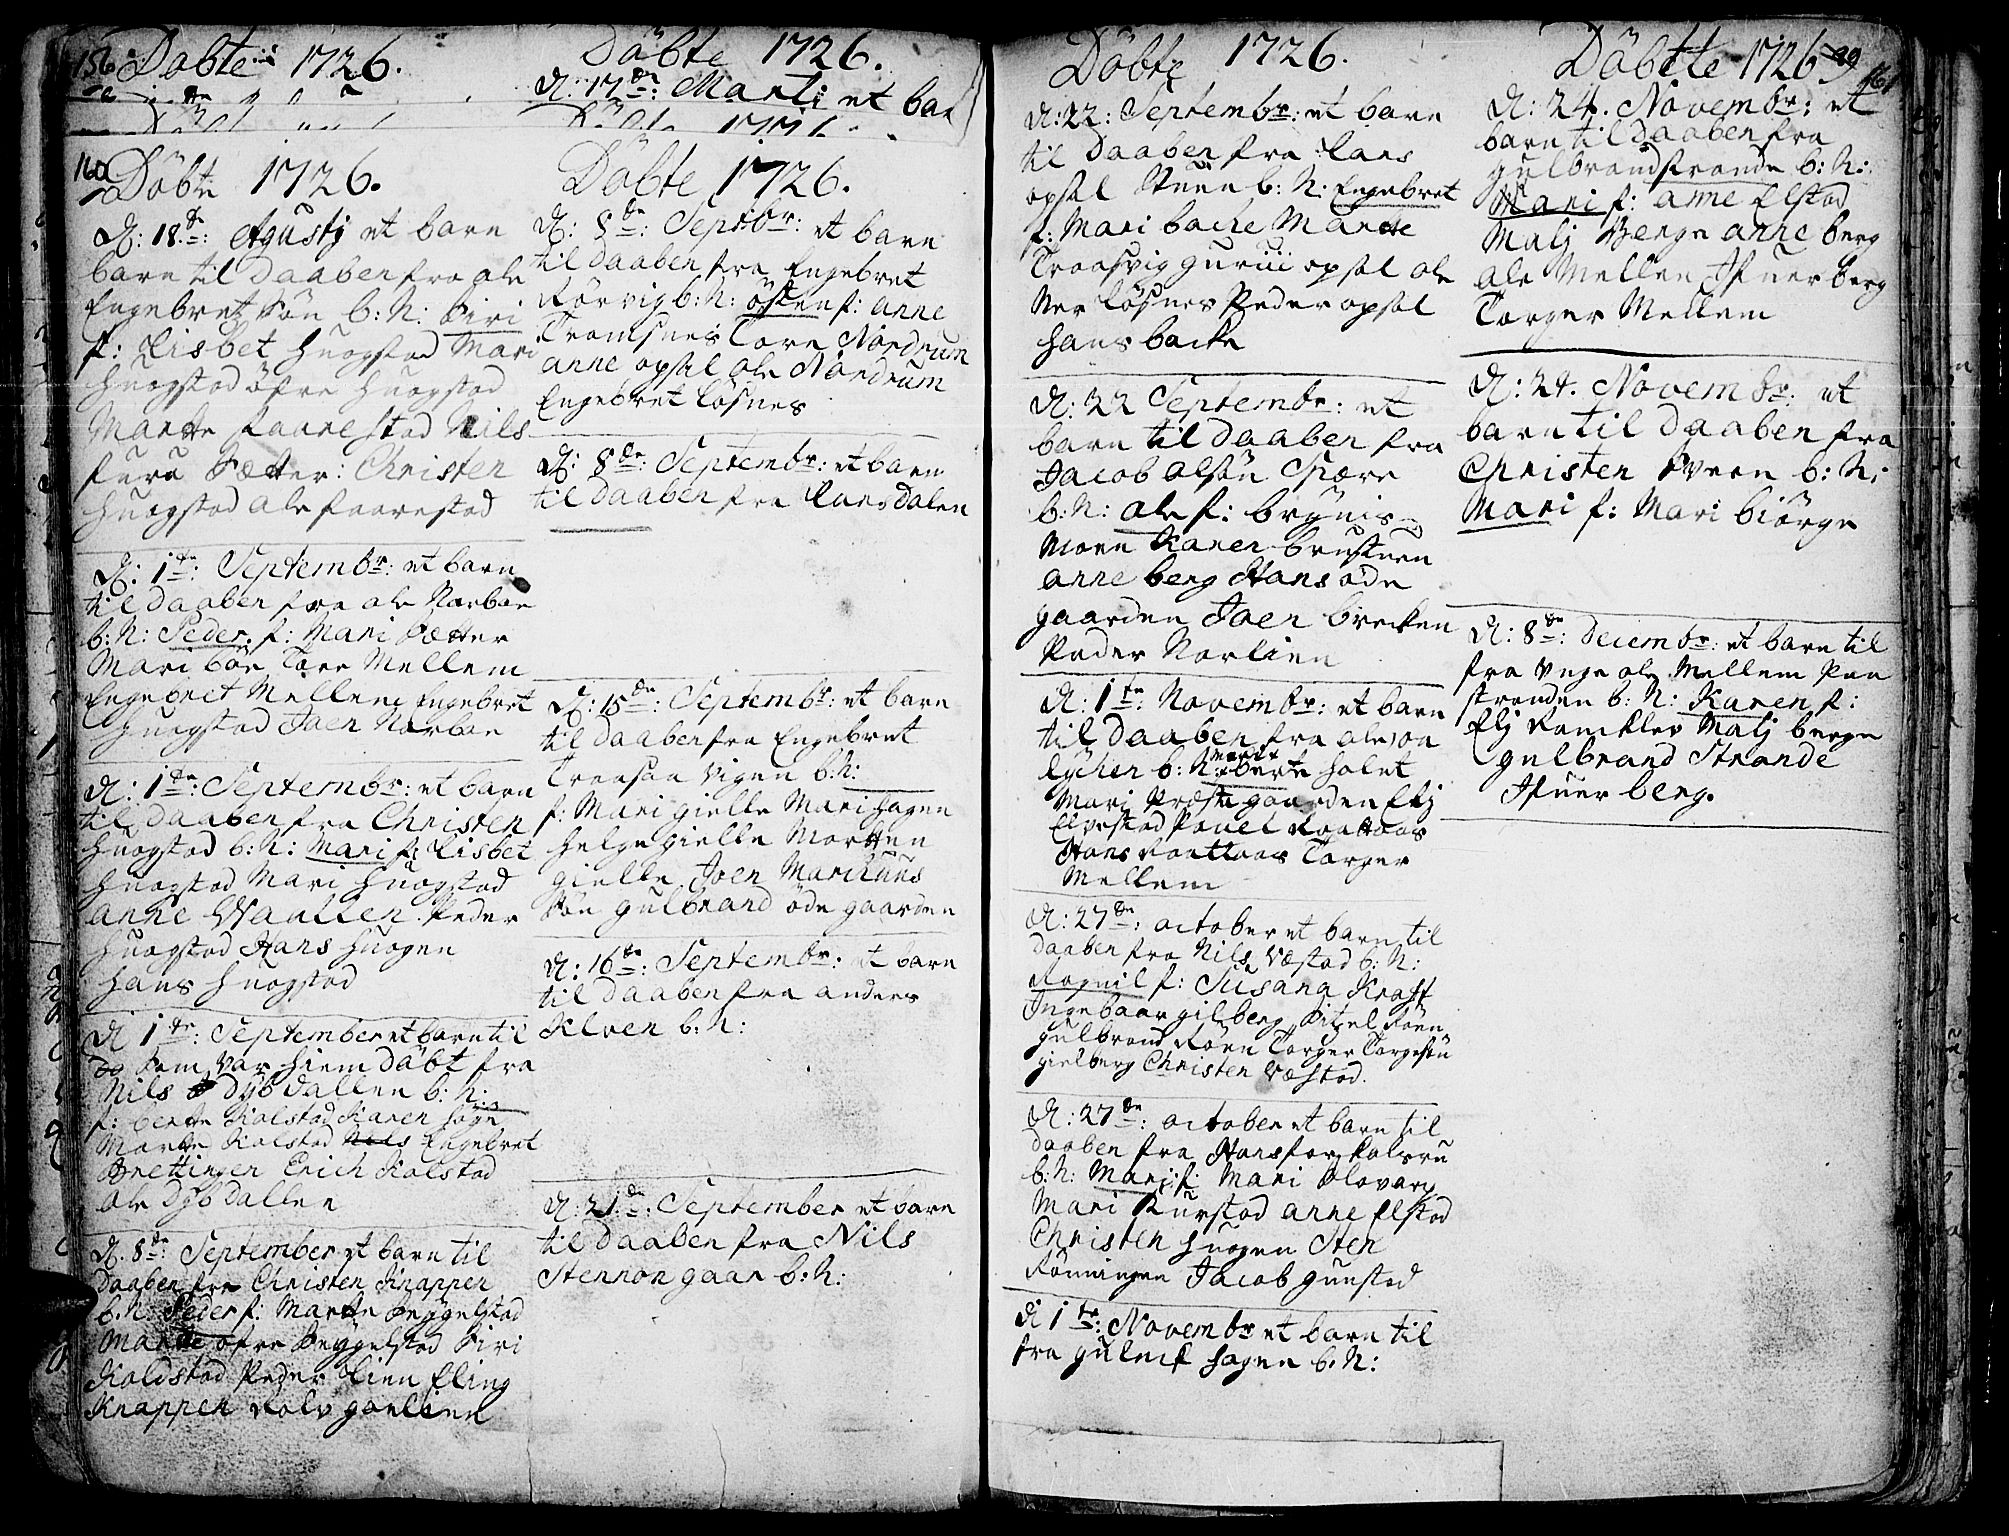 156 Döbte 1726.
Döbte 1726.
D: 17de: Marti et bar
160
Döbte 1726.
D: 18de: Agustj et barn
barn til daaben fra ole
Engebret Sön b: N: Siri
f: Lisbet huogstad Mari
huogstad öfre huogstad
Marte faarestad Nils
furu Sætter: Christen
huogstad ole faarestad
D: 1te: Septembr: et barn
til daaben fra ole Narboe
b: N: Peder f: Mari Sætter
Mari Tore Mellem
Engebret Mellem Engebret
huogstad Joen Narboe
D: 1te: Septembr: et barn
til daaben fra Christen
huogstad b: N: Mari f: Lisbet
huogstad Mari huogstad
anne Waallen Peder
huogstad Hans huogen
hans huogstad
D 1te: September et barn til
do Som var hiem döbt fra
Nils Dybdallen b: N:
f: berte Kolstad Karen høgn
Marte Kolstad Nils Engebret
brettingen Erich Kolstad
ole Dybdallen
D. 8de: September et barn til
daaben fra Christen Knappen
b: N: Peder f: Marte Seyyelstad
Marte öfre Seyyelstad Siri
Koldstad Peder Lien Eling
Knappen Rolv garlien
Döbte 1726.
D: 8de: Septbr: et barn
til daaben fra Engebret
Rörvig b: N: östen f: anne
Tromsnes Tore Nordrum
anne opsal ole Nordrum
Engebret Løsnes
D: 8de: Septembr: et barn
til daaben fra Lars dalen
D: 15de: Septembr: et barn
til daaben fra Engebret
Troasaa vigen b: N:
f: Mari gielle Mari hagen
helge gielle Morten
gielle Joen Marikuus
Sön gulbrand öde gaarden
D: 16de: Septembr: et barn
til daaben fra anders
Kloen b: N:
D: 21de: September et barn
til daaben fra Nils
Stennon gaar b: N:
Döbte 1726.
D: 22: Septembr: et barn
til daaben fra Lars
opsal Stuen b: N: Engebret
f: Mari backe Marte
Troasvig guruu opsal ole
Ner Løsnes Peder opsal
hans backe
D: 22 Septembr: et
barn til daaben fra
Jacob olsön Spære
b: N: ole f: brynis
Moen Karen brustuen
anne berg Hans öde
gaarden Joen brecken
Peder Norlien
D: 1te: Novembr: et barn
til daaben fra ole
Lychen b: N: Marte berte holet
Mari Præste gaarden Elj
Elvestad Pouel Raattaas
Hans Raattaas Torger
Mellem
D: 27de: october et barn til
daaben fra Nils Væstad b: N:
Rognil f: Susana Kraft
Ingebaar gilberg Kitel Röen
gulbrand Röen Torger Torgersön
gielberg Christen Væstad.
D: 27de: october et barn til
daaben fra Hans for Kalsru
b: N: Mari f: Mari Slovarp
Mari Rustad anne Elstad
Christen huogen Sten
Rönningen Jacob gunstad
D 1te: Novembr et barn til
fra guleif hagen b: N:
Döbte 1726
161
D: 24. Novembr: et
barn til daaben fra
gulbrand strande b: N:
Mari f: anne Elstad
Malj Berge anne berg
ole Mellem Ifuer berg
Torger Mellem
D: 24. Novembr: et
barn til daaben fra
Christen Sveen b: N:
Mari f: Mari biörge
D: 8de: Decembr: et barn til
fra unge ole Mellem Paa
stranden b: N: Karen f:
Elj Ramklev Malj berge
gulbrand Strande
Ifuer berg.